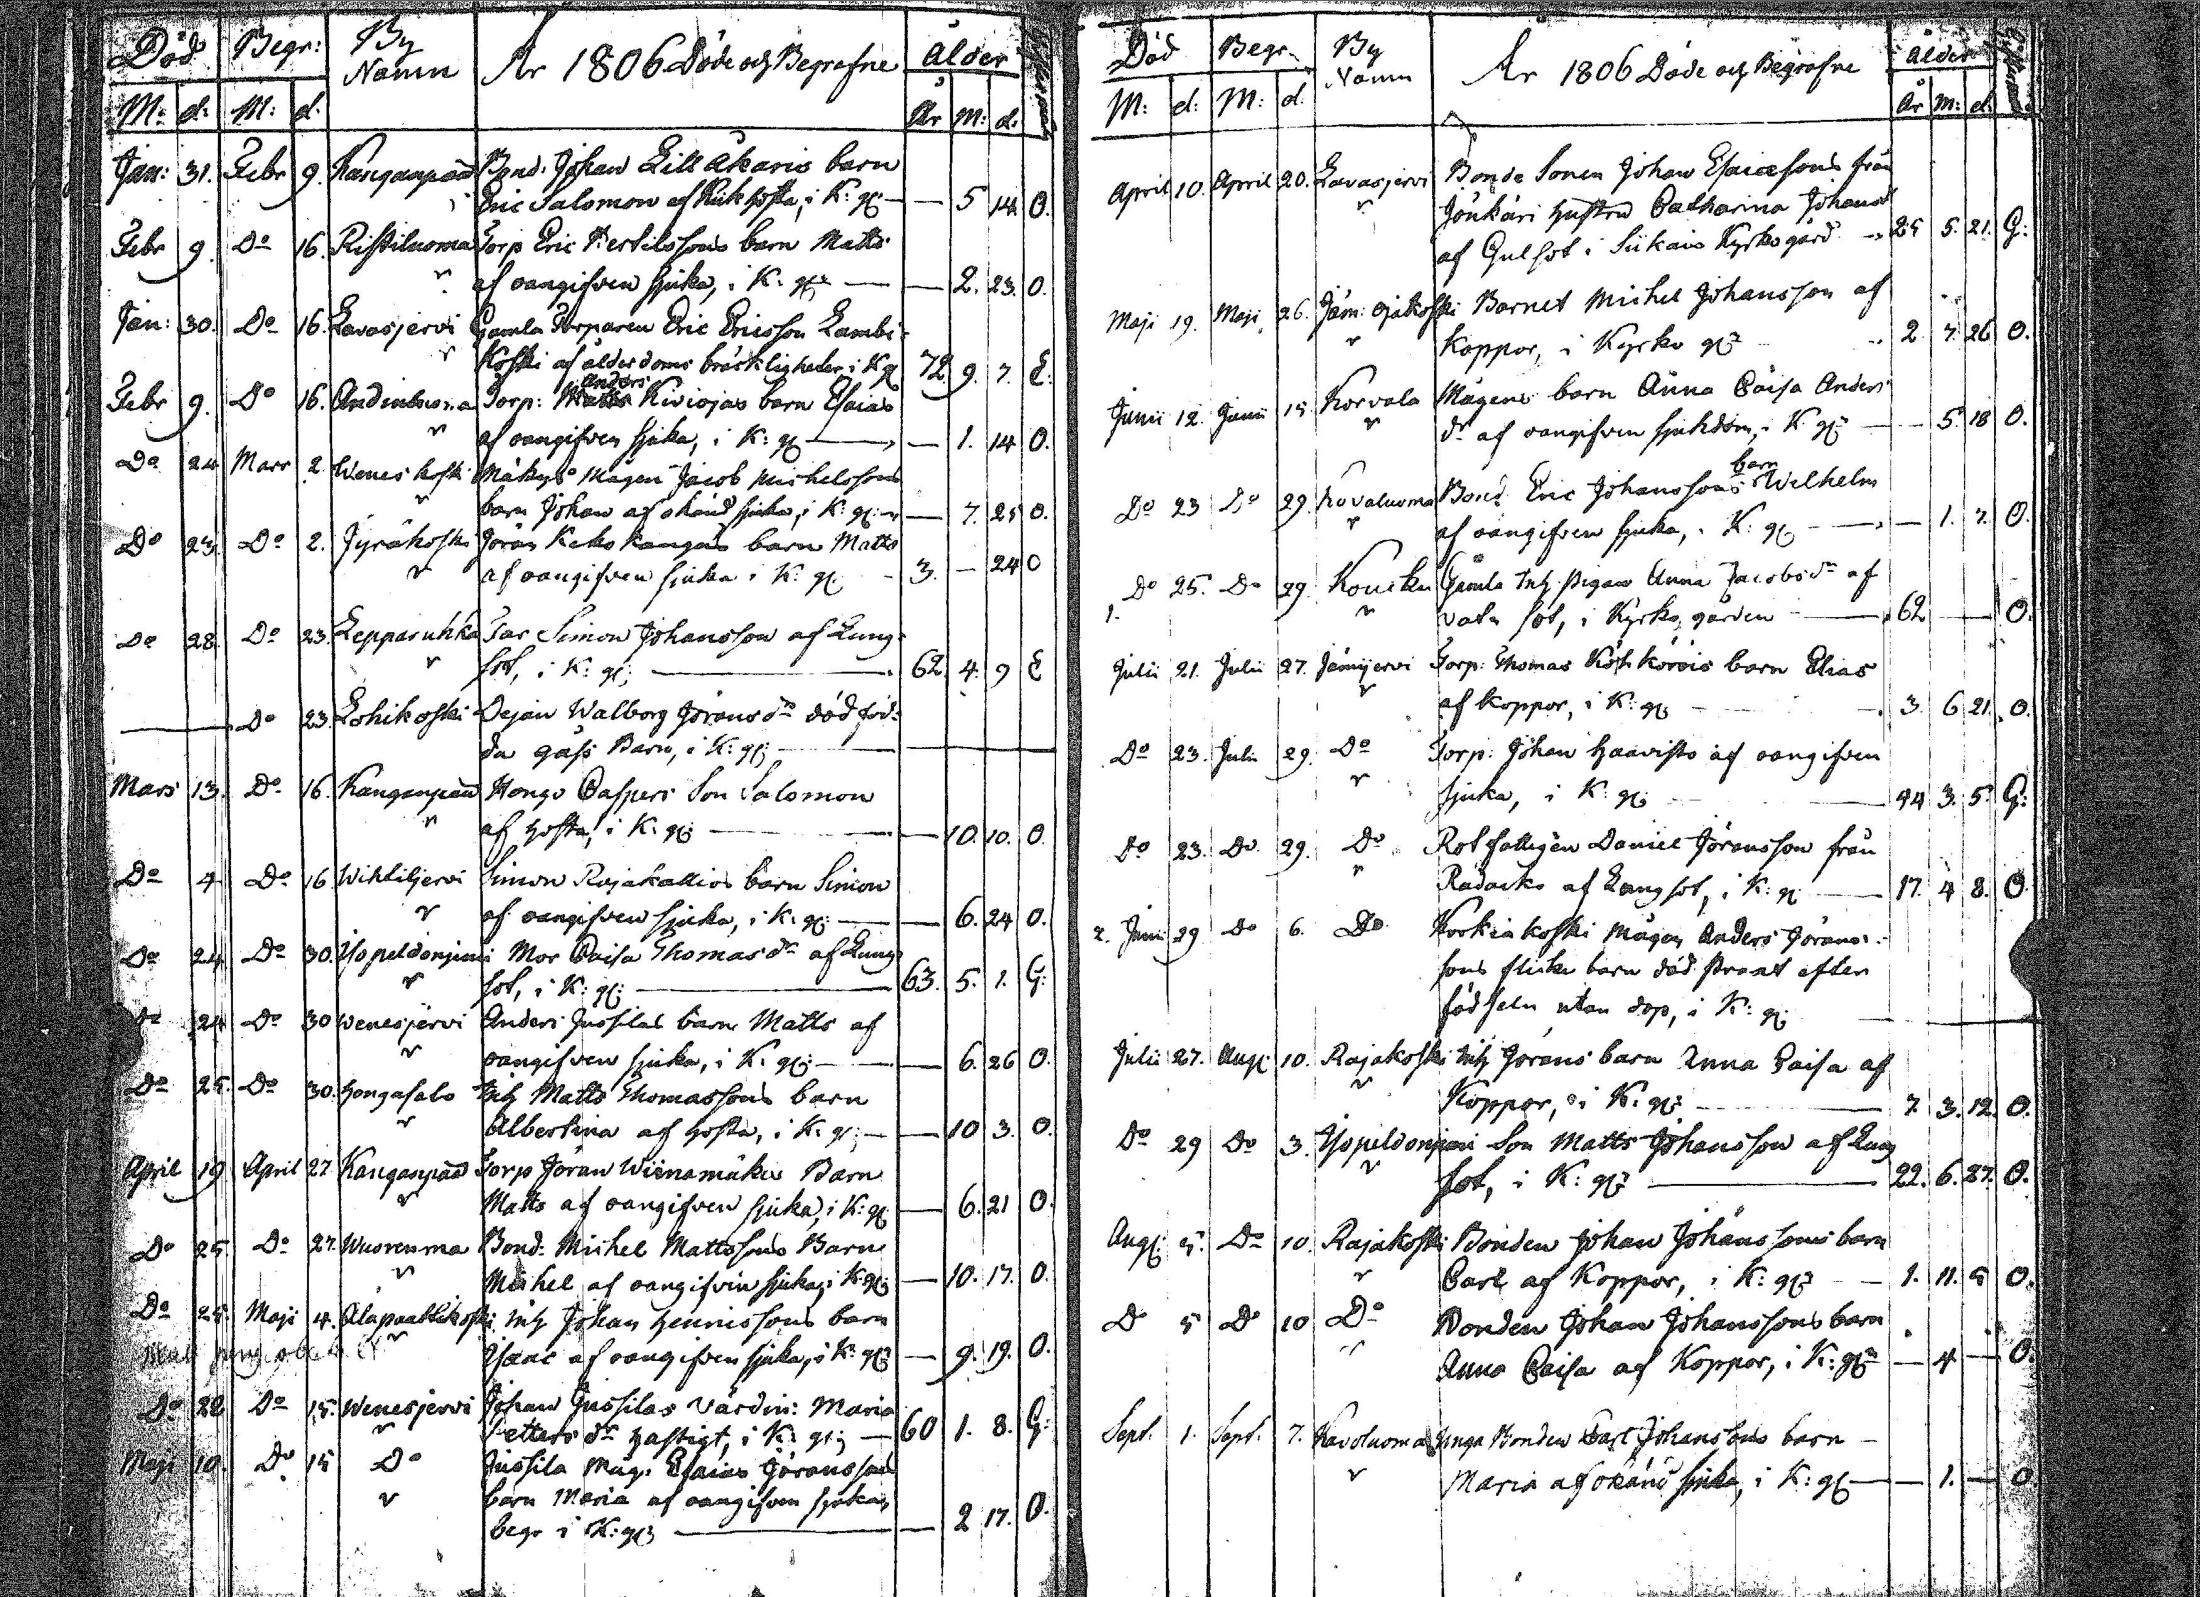 Död Begr: By Namn År 1806 Döde och Begrafne Ålder
M: d: M: d: År M: d:
Jan: 31. Febr 9. Kanganpää Bond: Johan Lill Äkäris barn
Eric Salomon af Kikhosta, i K: g: — 5 14. O.
Febr 9. Do 16. Ristiluoma Torp Eric Bertilssons barn Matts
af oangifven sjuka, i K: g: — 2. 23. O.
Jan: 30. Do 16. Lavasjervi Gamla Torparen Eric Ericsson Lambi-
koski af ålderdoms bräckligheder, i K g 72 9. 7. E:
Anders
Febr 9. Do 16. Torp: Matts Kiviojas barn Esaias
af oangifven sjuka, i K: g: — 1. 14 O.
Do 24 Mars 2. Weneskoski Mäkys Mågen Jacob Michelssons
barn Johan af okänd sjuka, i K: g: — 7. 25 O.
Do 23. Do 2. Jyräkoski Jöran Kekokangas barn Matts
af oangifven sjuka i K: g. 3. — 24 O
Do 28. Do 23. Lepparuhka Far Simon Johansson af Lung-
sot, i K: g; 62. 4. 9 E
— Do 23. Lohikoski Dejan Walborg Jöransdr död föd-
da Barn, i K: g; —
Mars 13. Do 16. Kanganpää Hongo Caspers Son Salomon
af hosta, i K: g: — 10. 10. O.
Do 4. Do 16 Wihtiljervi Simon Rajakallios barn Simon
af oangifven sjuka, i K: g: — 6. 24 O.
Do 24. Do 30. Mor Caisa Thomasdr af Lung-
sot, i K: g: 63. 5. 1. G:
Do 24 Do 30 Wenesjervi Anders Jussilas barn Matts af
oangifven sjuka, i K: g: — 6. 26 O.
Do 25. Do 30. Hongasalo Inh Matts Thomassons barn
Albertina af hosta, i K: g: — 10 3. O.
April 19 April 27 Kanganpää Torp Jöran Wiinamäkis Barn
Matts af oangifven sjuka, i K: g: — 6. 21 O.
Do 25. Do 27. Wuorenma Bond: Michel Mattssons Barn
Michel af oangifven sjuka, i K: g: — 10. 17. O.
Do 25. Maji 4. Alapaattikoski Inh Johan Henricssons barn
Isaac af oangifven sjuka, i K: g: — 9. 19. O.
Do 28 Do 15. Wenesjervi Johan Jussilas Värdin: Maria
Pettersdr hastigt, i K: g; — 60 1. 8. G:
Maji 10. Do 15 Do Jussila Måg: Esaias Jöranssons
barn Maria af oangifven sjuka,
begr i K: g; — 2 17. O.
Död Begr. By Namn År 1806 Döde och Begrafne Ålder
M: d: M: d. År M: d:
April 10. April 20. Lavasjervi Bonde Sonen Johan Esaiæsons från
Jänkäri Hustru Catharina Johansd
af Gulsot i Siikais Kyrkogård 25 5. 21. G:
Maji 19. Maji 26. Barnet Michel Johansson af
Koppor, i Kyrko g: 2 7. 26 O.
Junii 12. Junii 15 Korvala Mågens barn Anna Caisa Anders
dr af oangifven sjukdom, i K g: — 5. 18 O.
barn
Do 23 Do 29. Kovaluoma Bond. Eric Johanssons Wilhelm
af oangifven sjuka, i K: g. — 1. 7. O.
Do 25. Do 29. Gamla Inh Pigan Anna Jacobsdr af
1. vatn sot, i Kyrko gården — 62 — O.
Julii 21. Julii 27. Jämijervi Torp: Thomas barn Elias
af koppor, i K: g: 3. 6 21. O.
Do 23. Julii 29. Do Torp: Johan Haavisto af oangifven
sjuka, i K: g: 44 3. 5. G:
Do 23. Do. 29. Do Rotfattigen Daniel Jöransson från
af Lungsot, i K: g — 17. 4 8. O.
2. Junii 29 Do 6. Do Korkiakoski Mågen Anders Jörans-
sons flicke barn död strax efter
födseln utan dop, i K: g:
Julii 27. Aug: 10. Rajakoski Inh Jörans barn Anna Caisa af
Koppor, i K: g: 7. 3. 12. O.
Do 29 Do 3. Son Matts Johansson af Lung
sot, i K: g: 22. 6. 27. O.
Aug: 5. Do 10 Rajakoski Bonden Johan Johanssons barn
Carl af Koppor, i K: g: — 1. 11. 5 O.
D 5 Do 10 Do Bonden Johan Johanssons barn
Anna Caisa af Koppor, i K: g: — 4 — O.
Sept. 1. Sept. 7. Kavoluoma Unga Bonden Carl Johanssons barn
Maria af okänd sjuka, i K: g — 1. — O